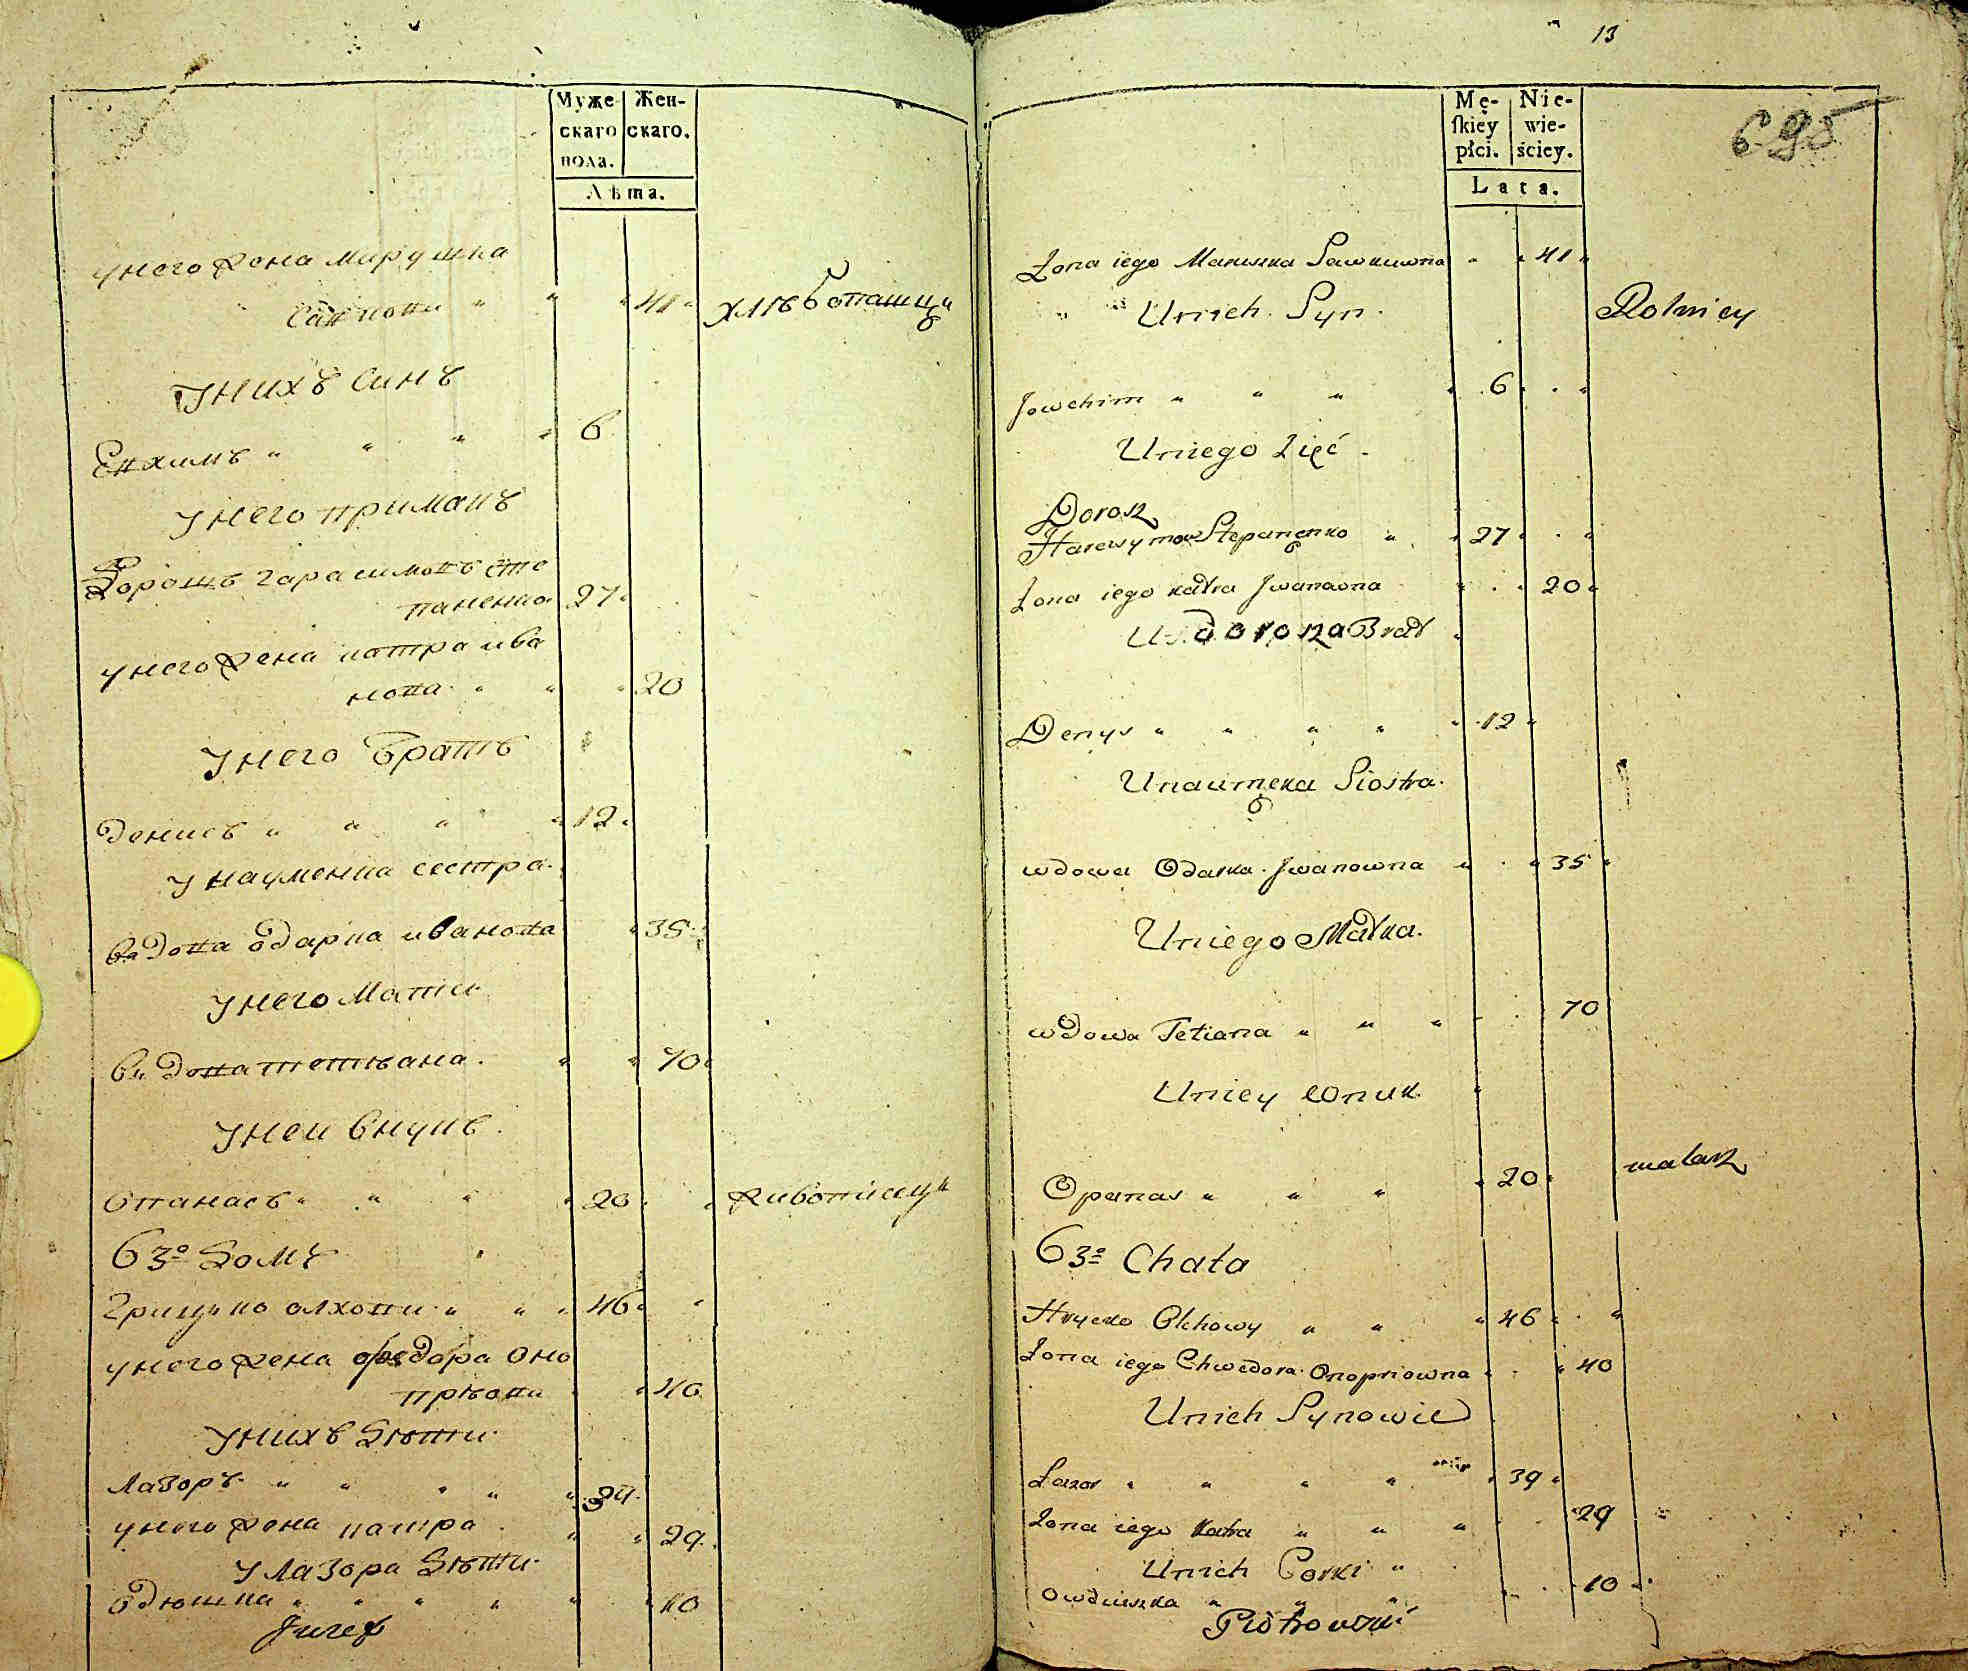 Муже-
скаго
пола.
Жен-
скаго.
Лѣта.
у него жена марушка
савкови 41 хлѣбопашиць
У нихъ синъ
Евхимъ 6
У него примакъ
Дорошъ гарасимовъ сте
паненко 27
у него жена катра ива
нова 20
У него братъ
денисъ 12
У науменка сестра
вдова одарка иванова 35
У него мати
вдова тетѣана 70
У неи внукъ
опанасъ 20 живописиць
63º домъ
грицько олхови 46
у него жена федора оно
прѣови 40
У нихъ дѣти
лазоръ 39
у него жена катра 29
У лазора дѣти
одюшка 10
13
695
Mę-
skiey
płci.
Nie-
wie-
ściey.
Lata.
Żona iego Maruszka Sawkuwna 41
Unich Syn Rolnicy
Jowchim 6
Uniego Zięć
Dorosz
Harasymow Stepanenko 27
Żona iego Katra Iwanowna 20
U Dorosza Brat
Denys 12
Unaumenka Siostra
wdowa Odarka Iwanowna 35
Uniego Matka
wdowa Tetiana 70
Uniey Wnuk
Opanas 20 malarz
63º Chata
Hrycko Olchowy 46
Żona iego Chwedora Onopriowna 40
Unich Synowie
Łazor 39
Żona iego Katra 29
Unich Corki
Owdiuszka 10
Piotrowski